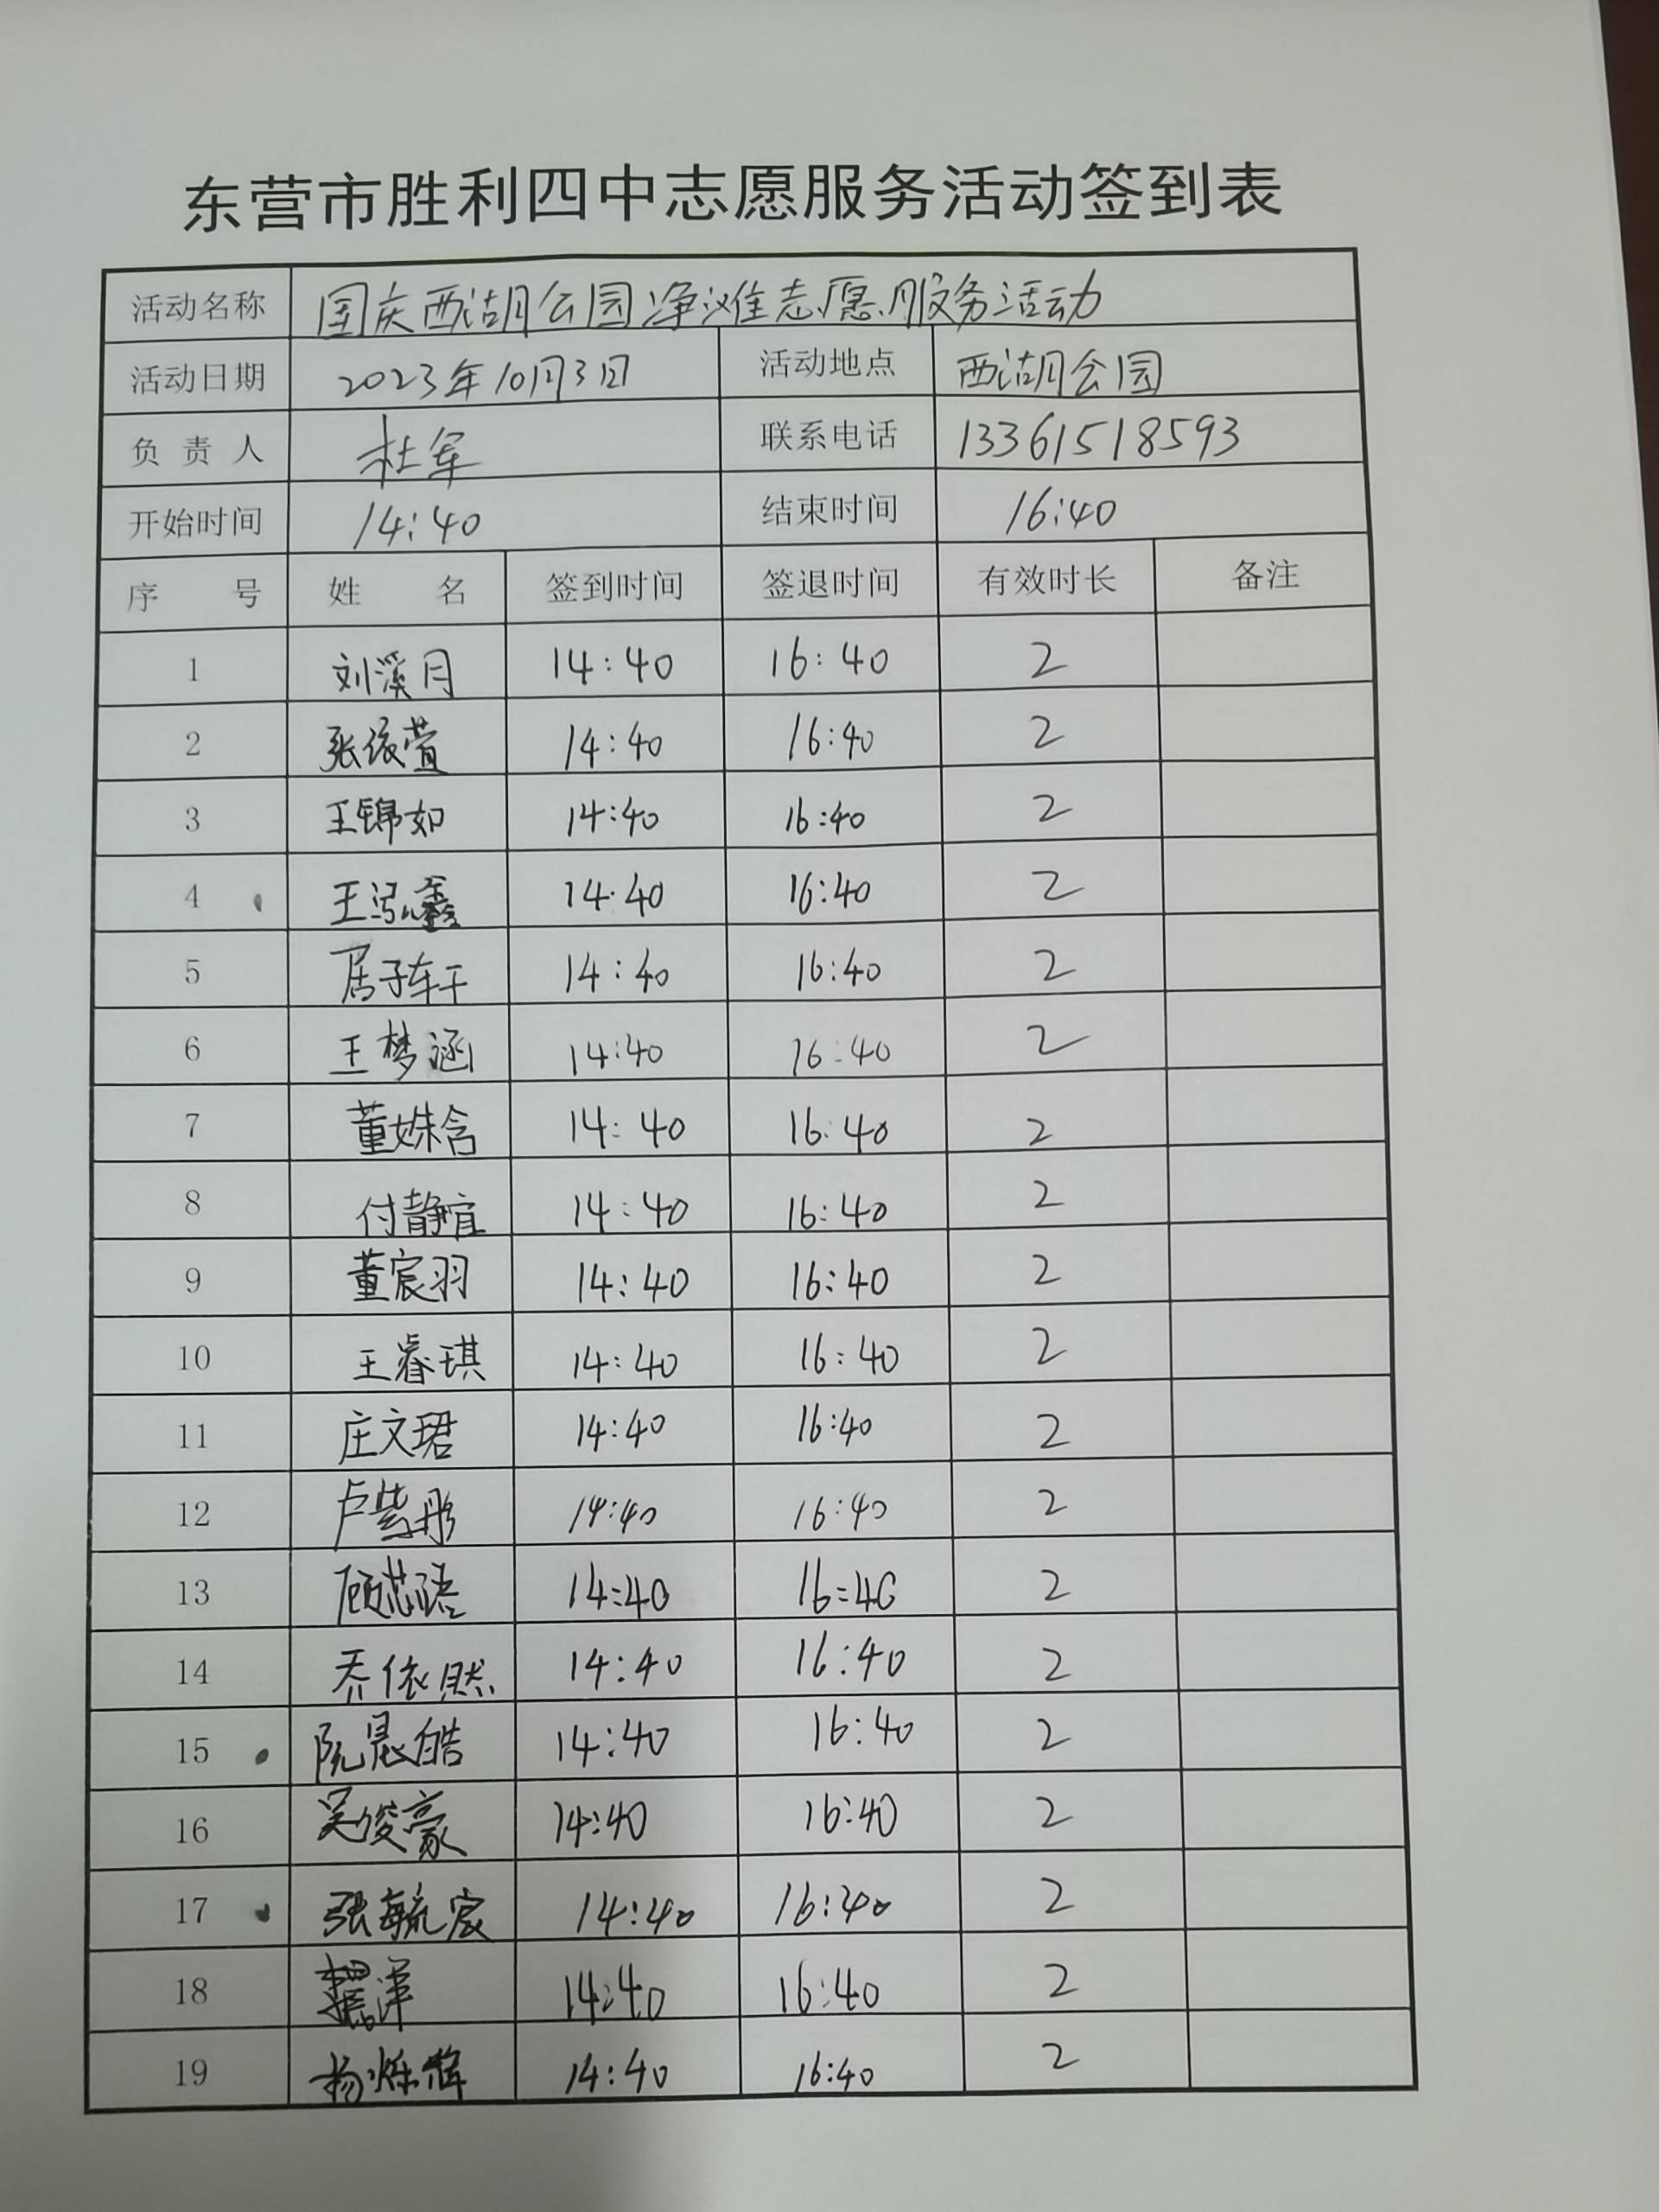 东营市胜利四中志愿服务活动签到表
活动名称 国庆西湖公园净滩志愿服务活动
活动日期 2023年10月3日 活动地点 西湖公园
负责人 杜军 联系电话 13361518593
开始时间 14:40 结束时间 16:40
序号 姓名 签到时间 签退时间 有效时长 备注
1 刘溪月 14:40 16:40 2
2 张依萱 14:40 16:40 2
3 王锦如 14:40 16:40 2
4 王泓鑫 14:40 16:40 2
5 居子轩 14:40 16:40 2
6 王梦涵 14:40 16:40 2
7 董姝含 14:40 16:40 2
8 付静宜 14:40 16:40 2
9 董宸羽 14:40 16:40 2
10 王睿琪 14:40 16:40 2
11 庄文珺 14:40 16:40 2
12 卢紫彤 14:40 16:40 2
13 顾芯语 14:40 16:40 2
14 乔依然 14:40 16:40 2
15 阮晨皓 14:40 16:40 2
16 吴俊豪 14:40 16:40 2
17 张毓宸 14:40 16:40 2
18 14:40 16:40 2
19 杨烁辉 14:40 16:40 2